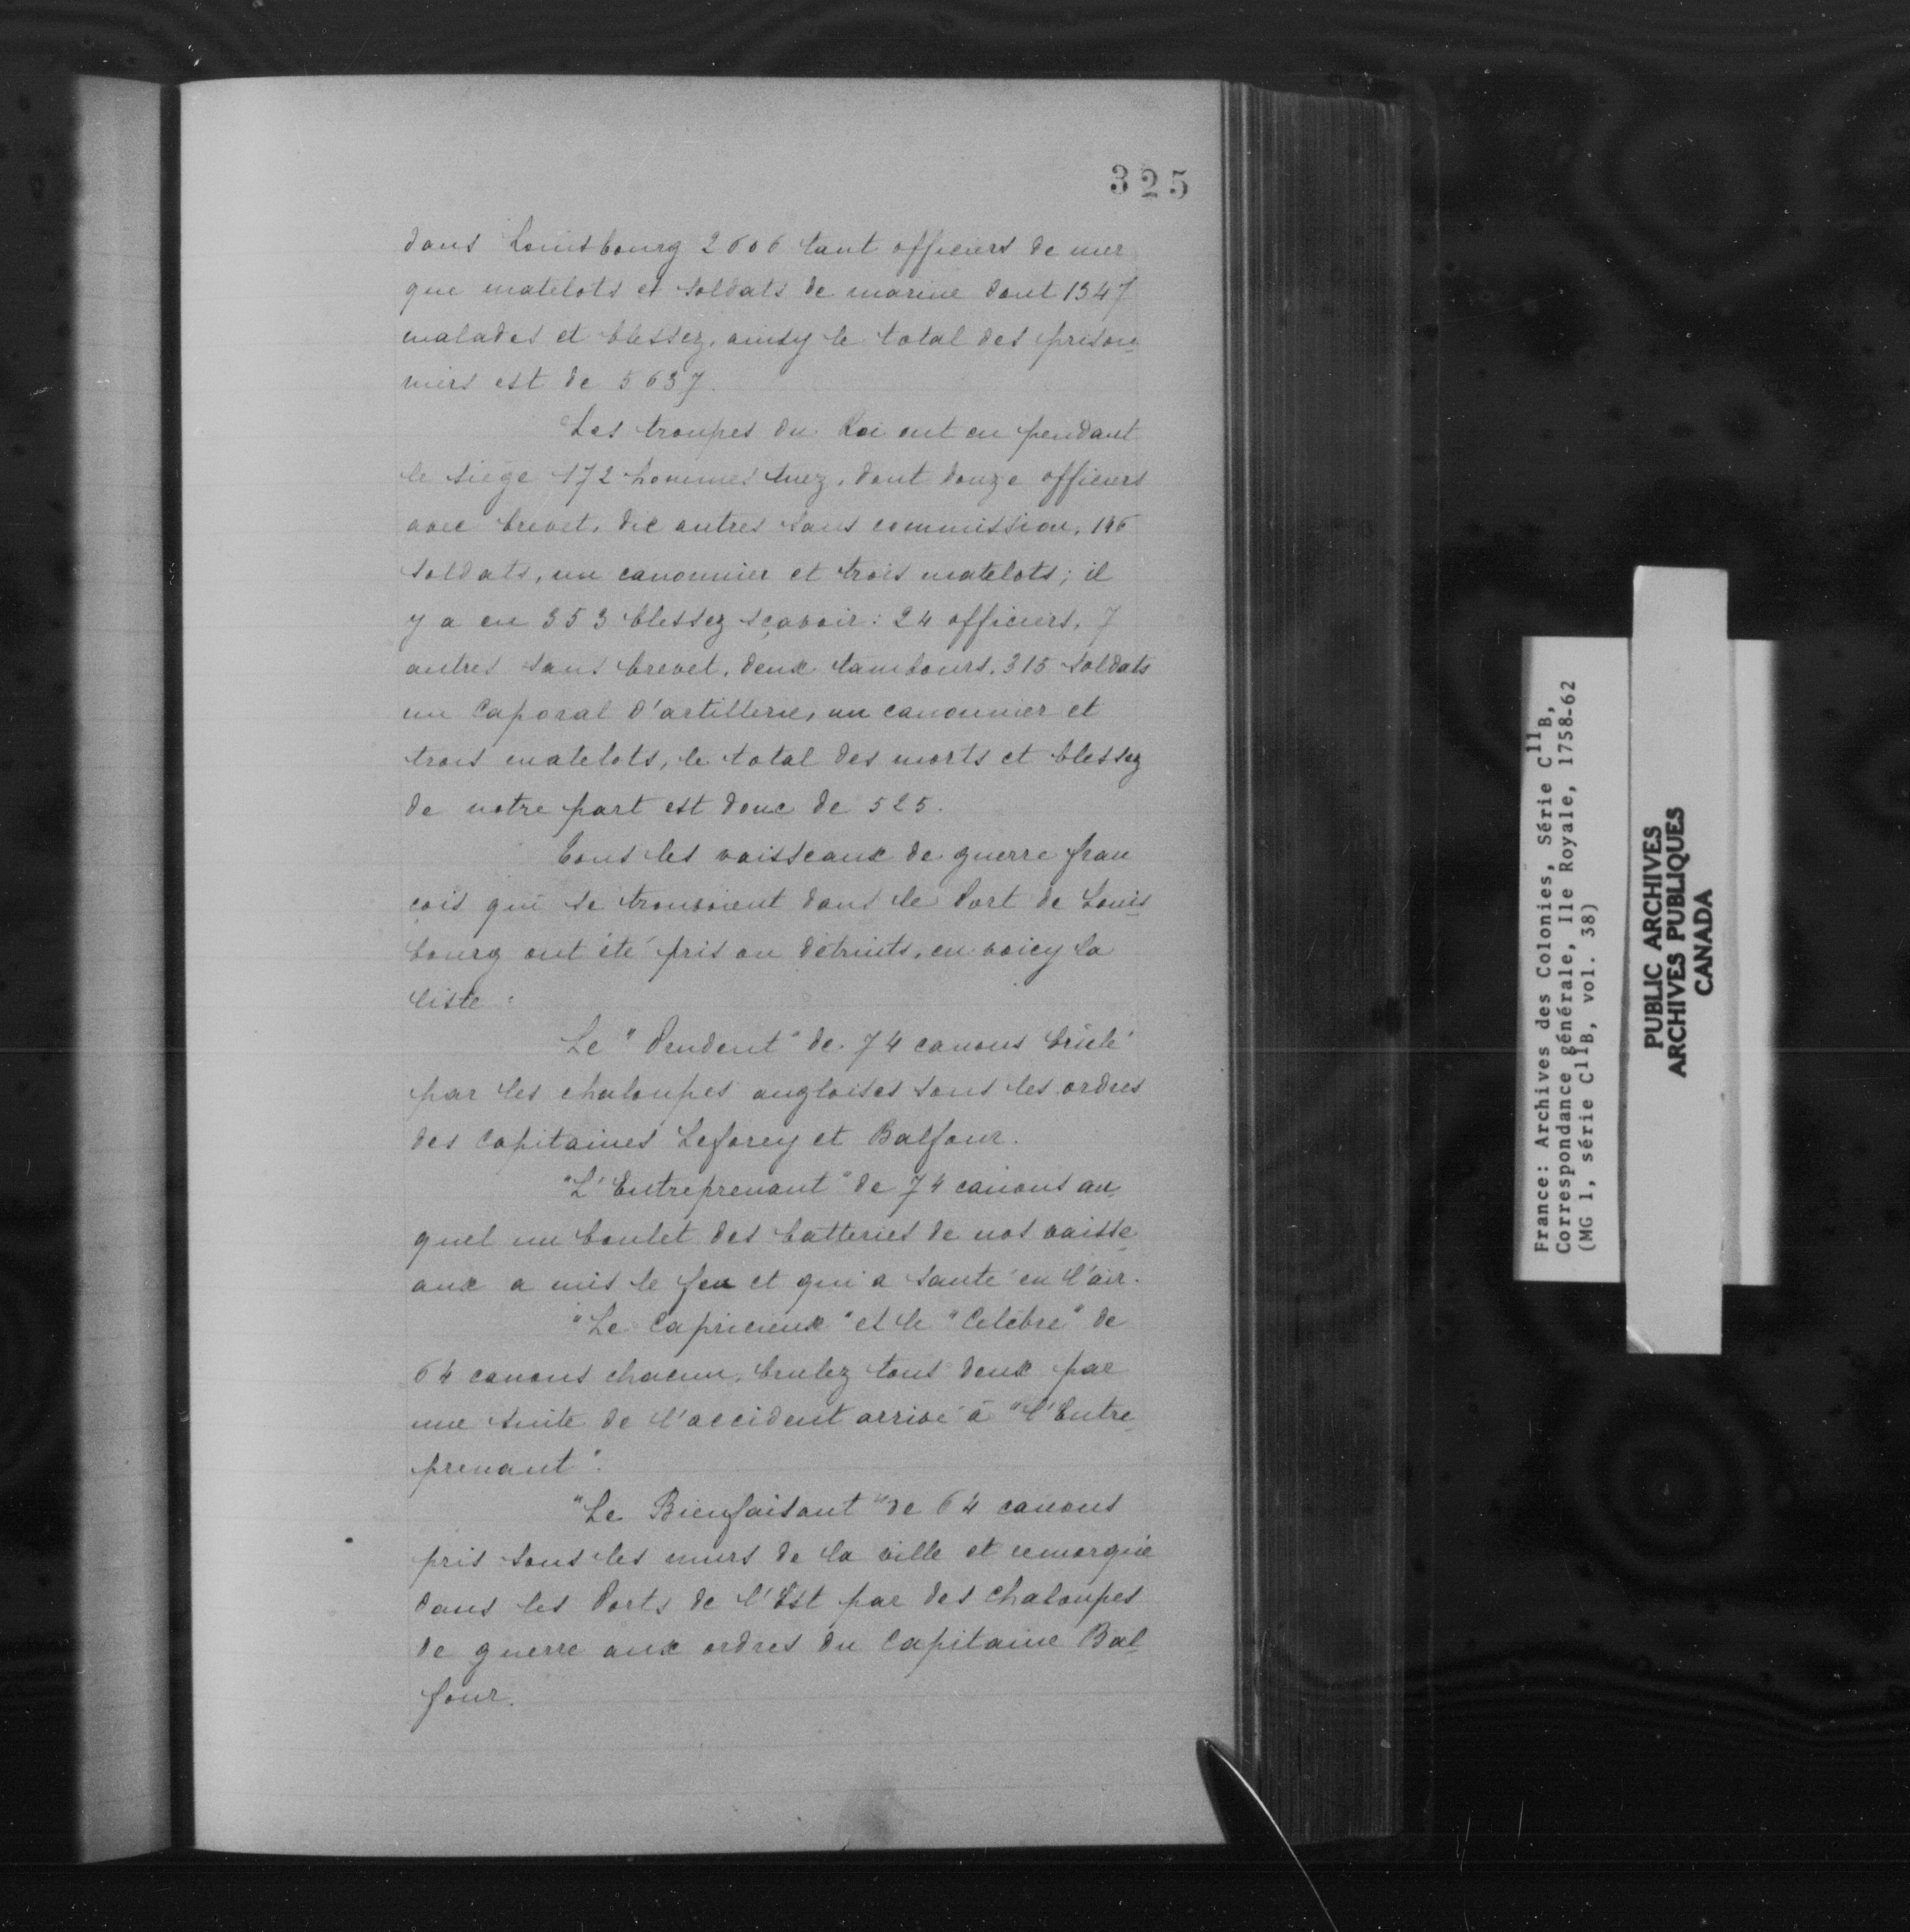 325
dans Louisbourg 2606 tant officiers de mer
que matelots et soldats de marine dont 1347
malades et blessez, ainsy le total des prison
niers est de 5637.
Les troupes du Roi ont eu pendant
le siège 172 hommes tuez, dont douze officiers
avec brevet, dix autres sans commission, 146
soldats, un canonnier et trois matelots; il
y a eu 353 blessez sçavoir: 24 officiers, 7
autres sans brevet, deux tambours, 315 soldats
un Caporal d'artillerie, un canonnier et
trois matelots, le total des morts et blessez
de notre part est donc de 525.
Tous les vaisseaux de guerre fran
cois qui se trouvoient dans le Port de Louis
bourg ont été pris ou détruits, en voicy la
liste :
Le "Prudent" de 74 canons brûlé
par les chaloupes angloises sous les ordres
des Capitaines Laforey et Balfour.
"L'Entreprenant" de 74 canons au
quel un boulet des batteries de nos vaisse
aux a mis le feu et qui a sauté en l'air.
"Le Capricieux" et le "Célèbre" de
64 canons chacun, brulez tous deux par
une suite de l'accident arrivé à "l'Entre
prenant".
"Le Bienfaisant" de 64 canons
pris sous les murs de la ville et remorqué
dans les Ports de l'Est par des Chaloupes
de guerre aux ordres du Capitaine Bal
four.
France: Archives des Colonies, Série C11B,
Correspondance générale, Ile Royale, 1758-62
(MG 1, série C11B, vol. 38)
PUBLIC ARCHIVES
ARCHIVES PUBLIQUES
CANADA